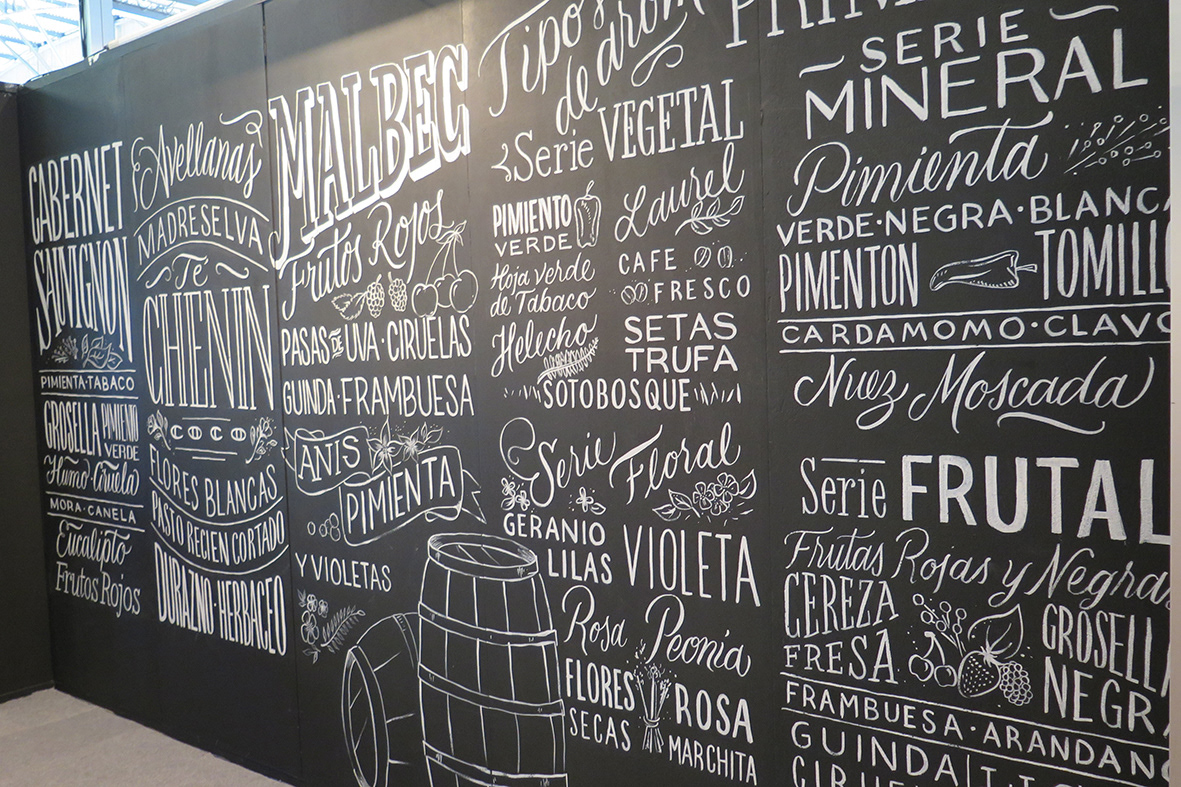 CABERNET
SAUVIGNON
PIMIENTA·TABACO
GROSELLA PIMIENTO
VERDE
Humo·Ciruela
MORA·CANELA
Eucalipto
Frutos Rojos
Avellanas
MADRESELVA
Té
CHENIN
COCO
FLORES BLANCAS
PASTO RECIEN CORTADO
DURAZNO·HERBACEO
MALBEC
Frutos Rojos
PASAS DE UVA·CIRUELAS
GUINDA·FRAMBUESA
ANIS
PIMIENTA
Y VIOLETAS
Tipos
de
Serie VEGETAL
PIMIENTO
VERDE
Hoja verde
de Tabaco
Helecho
Laurel
CAFE
FRESCO
SETAS
TRUFA
SOTOBOSQUE
Serie Floral
GERANIO
LILAS
VIOLETA
Rosa Peonia
FLORES
SECAS
ROSA
MARCHITA
SERIE
MINERAL
Pimienta
VERDE·NEGRA·BLANCA
PIMENTON TOMILLO
CARDAMOMO·CLAVO
Nuez Moscada
Serie FRUTAL
Frutas Rojas y Negras
CEREZA
FRESA
GROSELLA
NEGRA
FRAMBUESA·ARANDANO
GUINDA